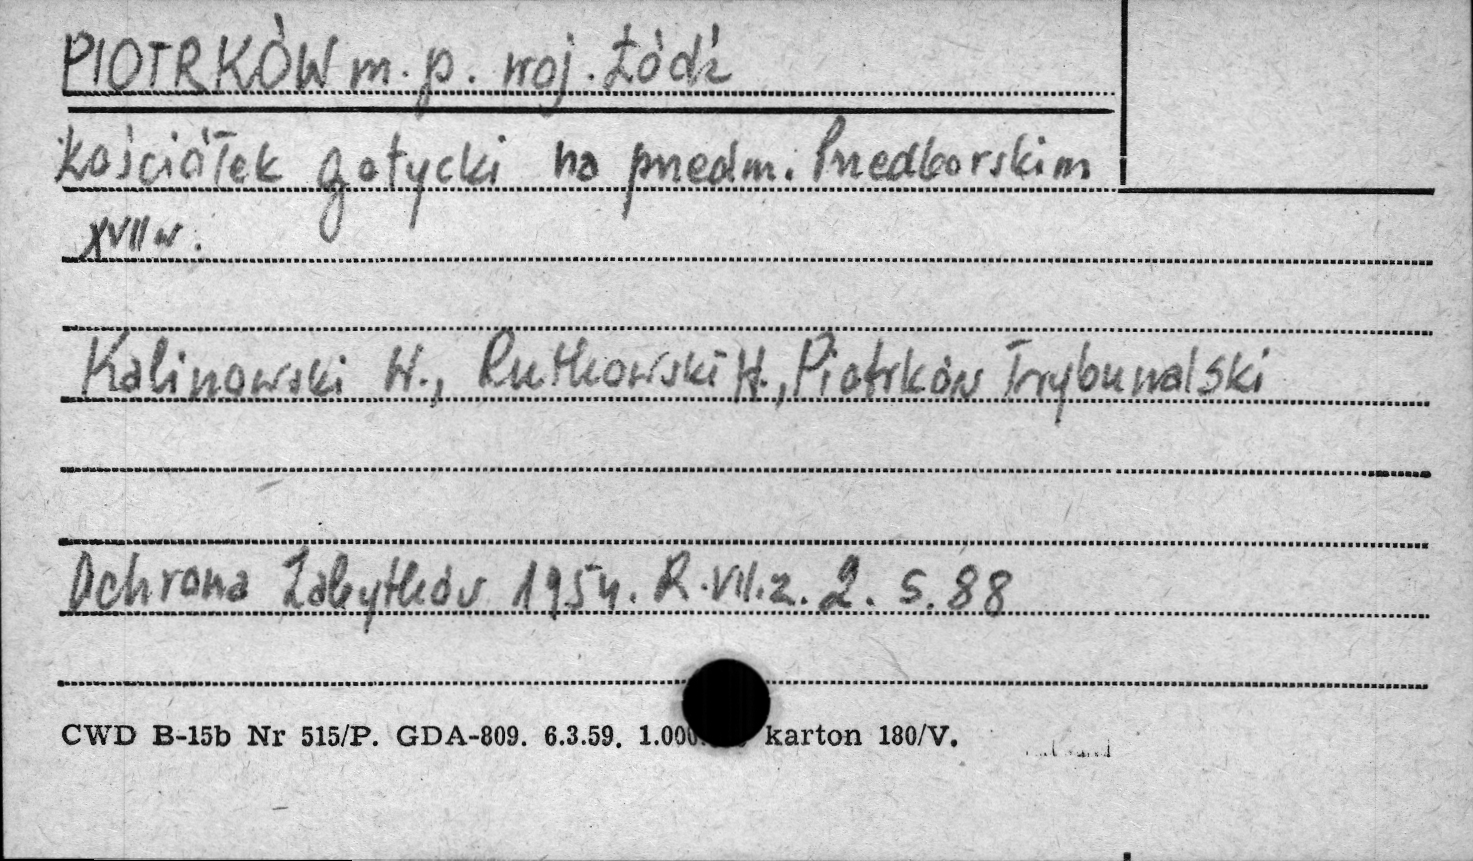 PIOTRKÓW m. p. woj. Łódź
Kościółek gotycki na przedm. Przedborskim
XVII w.
Kalinowski W., Rutkowski H., Piotrków Trybunalski
Ochrona Zabytków 1954. R. VII. z. 2. s. 88
CWD B-15b Nr 515/P. GDA-809. 6.3.59. 1.000. karton 180/V.